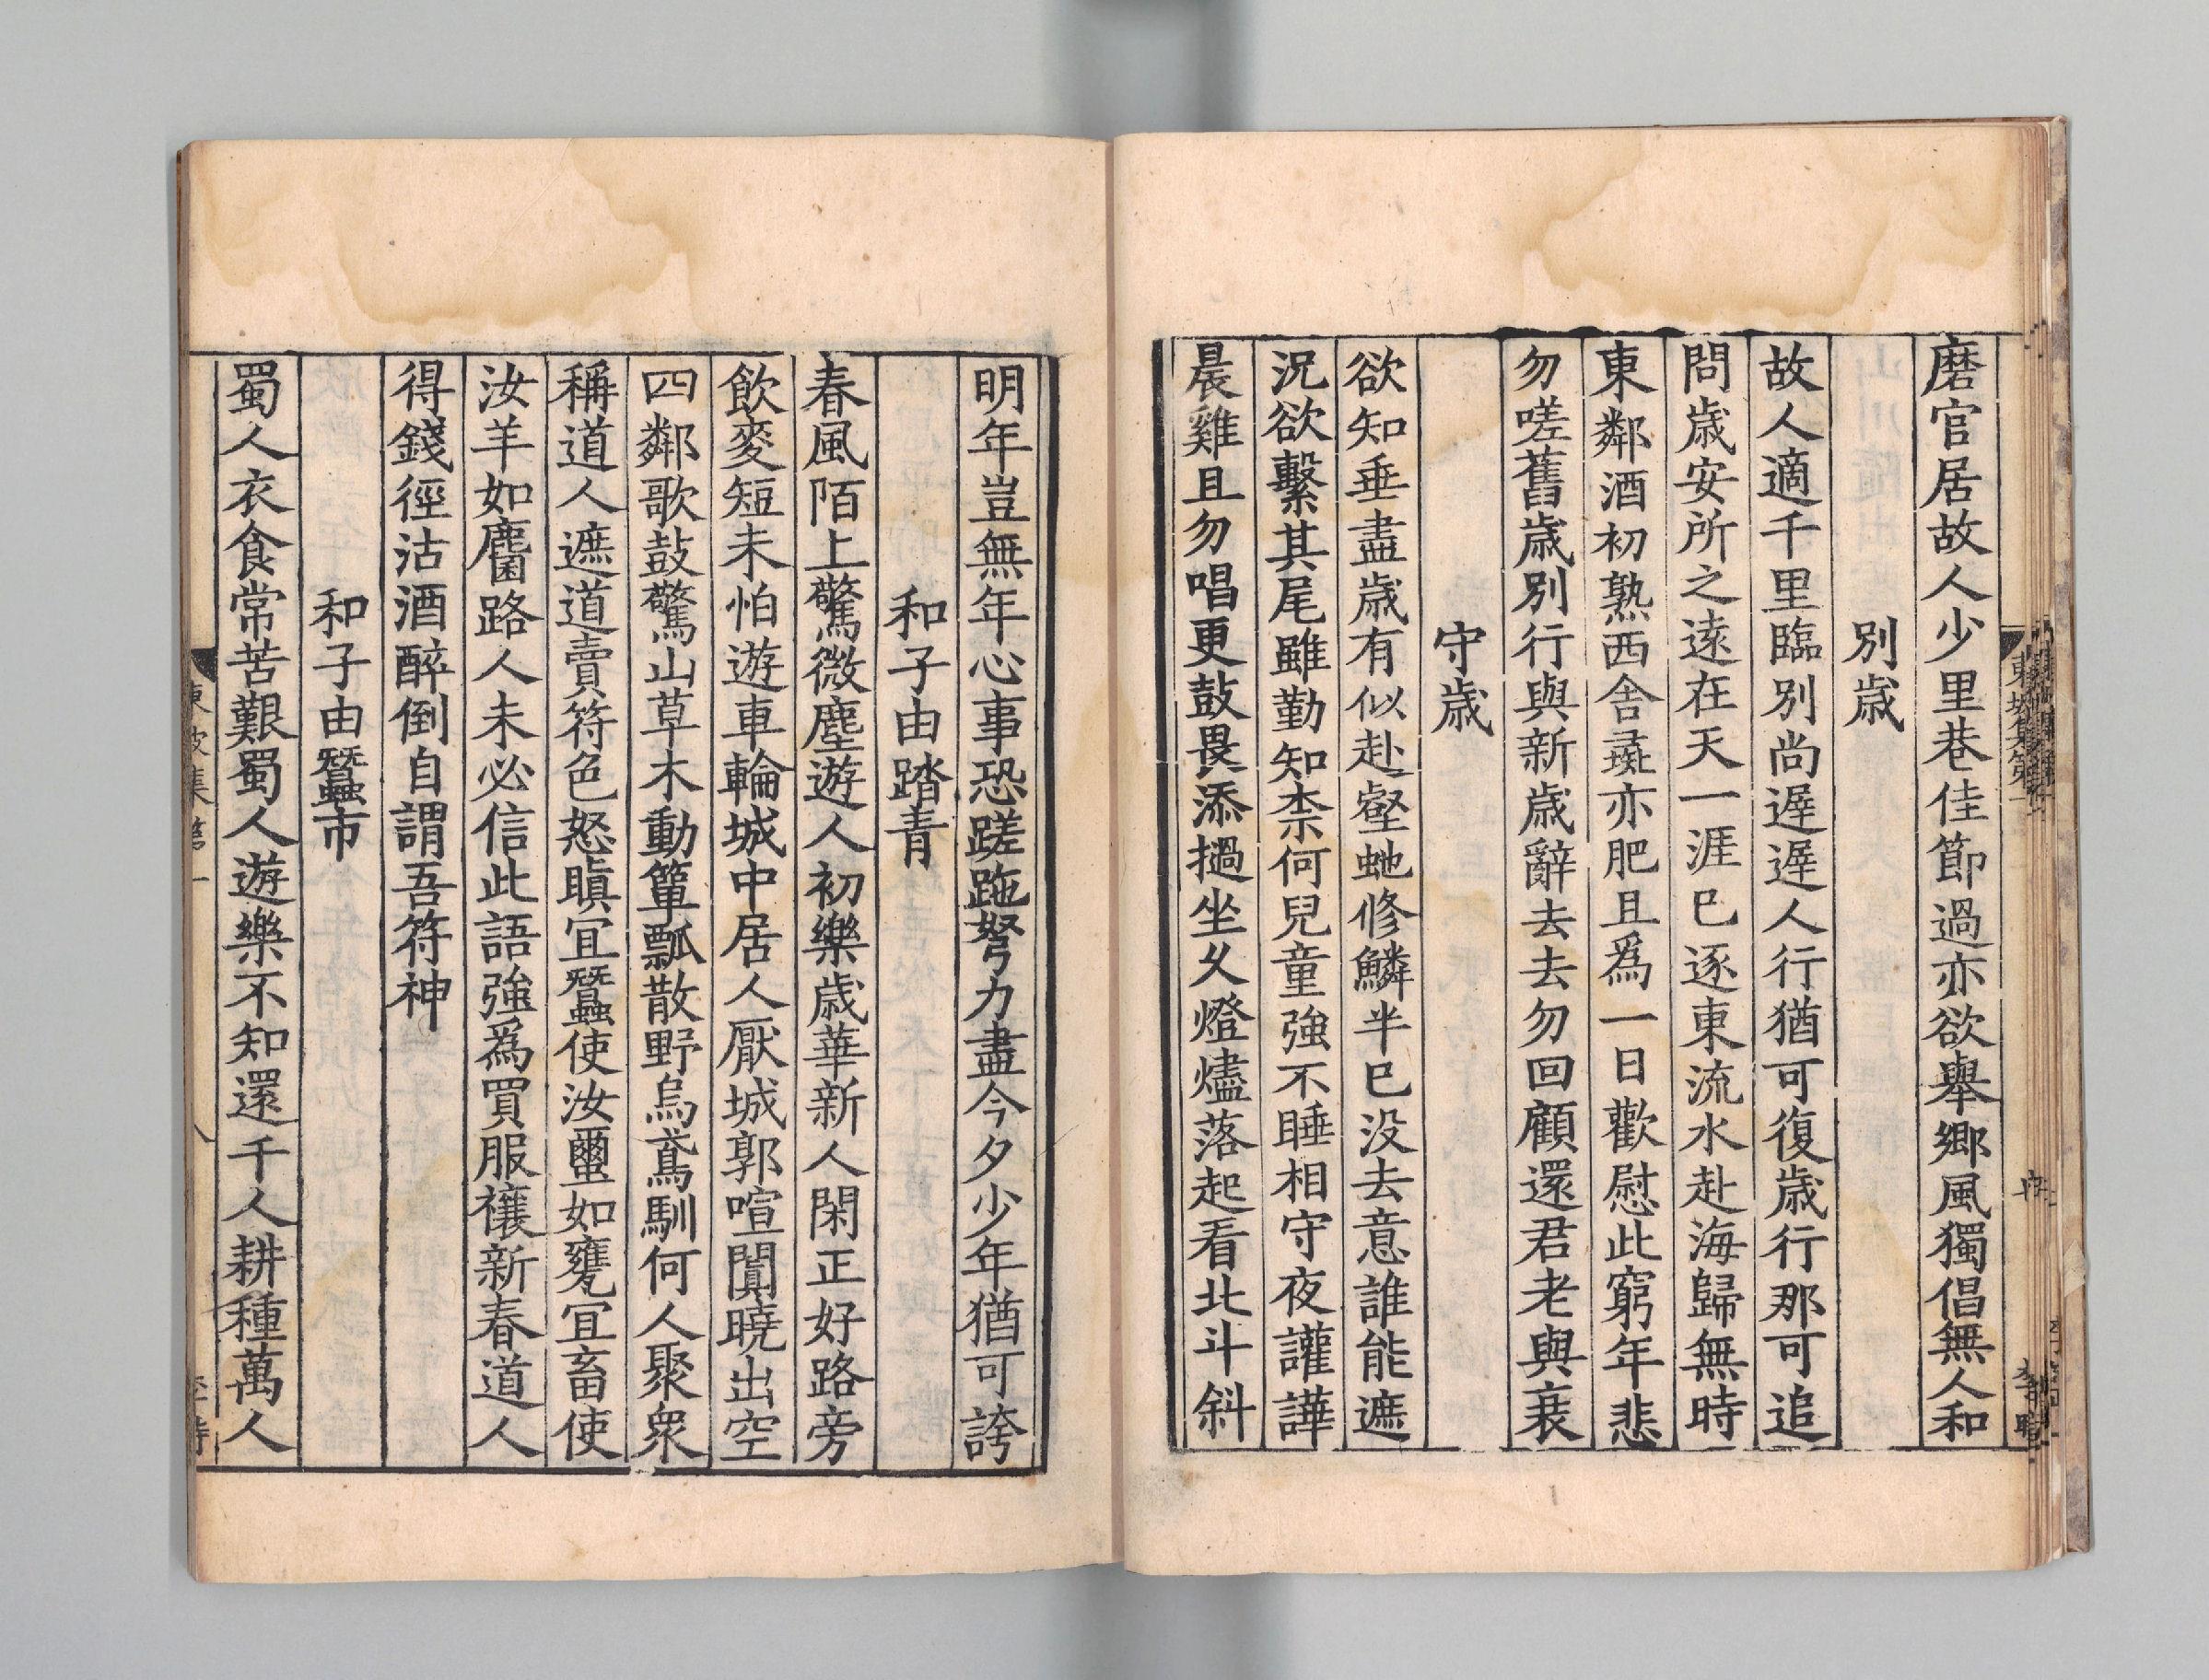 磨官居故人少里巷佳節過亦欲舉鄉風獨倡無人和
別歲
故人適千里臨別尚遲遲人行猶可復歲行那可追
問歲安所之遠在天一涯巳逐東流水赴海歸無時
東鄰酒初熟西舍彘亦肥且爲一日歡慰此窮年悲
勿嗟舊歲別行與新歲辭去去勿回顧還君老與衰
守歲
欲知垂盡歲有似赴壑虵修鱗半巳沒去意誰能遮
況欲繫其尾雖勤知柰何兒童強不睡相守夜讙譁
晨雞且勿唱更鼓畏添撾坐久燈燼落起看北斗斜
明年豈無年心事恐蹉跎努力盡今夕少年猶可誇
和子由踏青
春風陌上驚微塵遊人初樂歲華新人閑正好路旁
飲麥短未怕遊車輪城中居人厭城郭喧闐曉出空
四鄰歌鼓驚山草木動簞瓢散野烏鳶馴何人聚衆
稱道人遮道賣符色怒瞋宜蠶使汝璽如甕宜畜使
汝羊如麕路人未必信此語強爲買服禳新春道人
得錢徑沽酒醉倒自謂吾符神
和子由蠶市
蜀人衣食常苦艱蜀人遊樂不知還千人耕種萬人
東坡集第一